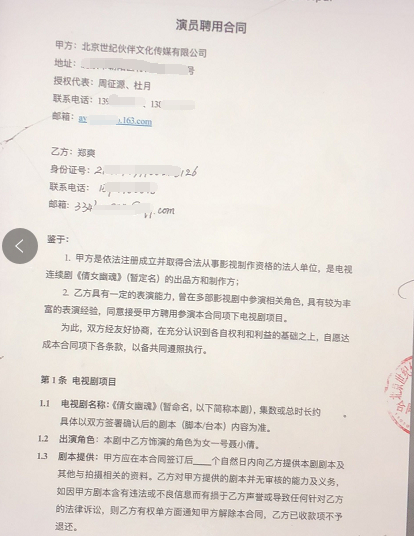 演员聘用合同
甲方：北京世纪伙伴文化传媒有限公司
地址：号
授权代表：周征源、杜月
联系电话：139、130
邮箱：.163.com
乙方：郑爽
身份证号：2
联系电话：
邮箱：334.com
鉴于：
1. 甲方是依法注册成立并取得合法从事影视制作资格的法人单位，是电视
连续剧《倩女幽魂》（暂定名）的出品方和制作方；
2. 乙方具有一定的表演能力，曾在多部影视剧中参演相关角色，具有较为丰
富的表演经验，同意接受甲方聘用参演本合同项下电视剧项目。
为此，双方经友好协商，在充分认识到各自权利和利益的基础之上，自愿达
成本合同项下各条款，以备共同遵照执行。
第 1 条 电视剧项目
1.1 电视剧名称：《倩女幽魂》（暂命名，以下简称本剧），集数或总时长约 。
具体以双方签署确认后的剧本（脚本/台本）内容为准。
1.2 出演角色：本剧中乙方饰演的角色为女一号聂小倩。
1.3 剧本提供：甲方应在本合同签订后____个自然日内向乙方提供本剧剧本及
其他与拍摄相关的资料。乙方对甲方提供的剧本并无审核的能力及义务，
如因甲方剧本含有违法或不良信息而有损于乙方声誉或导致任何针对乙方
的法律诉讼，则乙方有权单方面通知甲方解除本合同，乙方已收款项不予
退还。